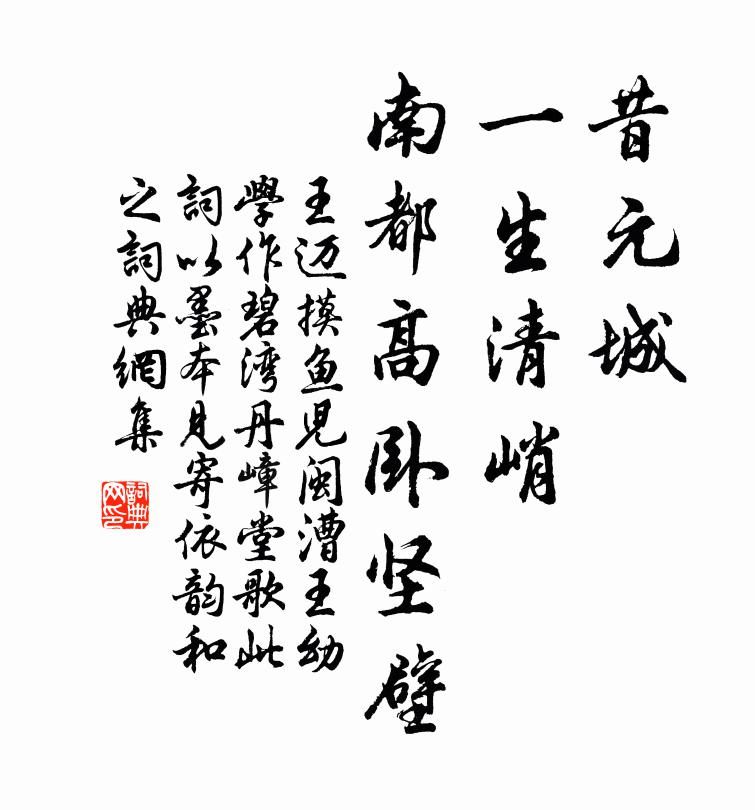 昔元城
一生清峭
南都高卧坚壁
王迈摸鱼児闽漕王幼
學作碧湾丹嶂堂歌此
詞以墨本見寄依韵和
之詞典網集
詞典网印